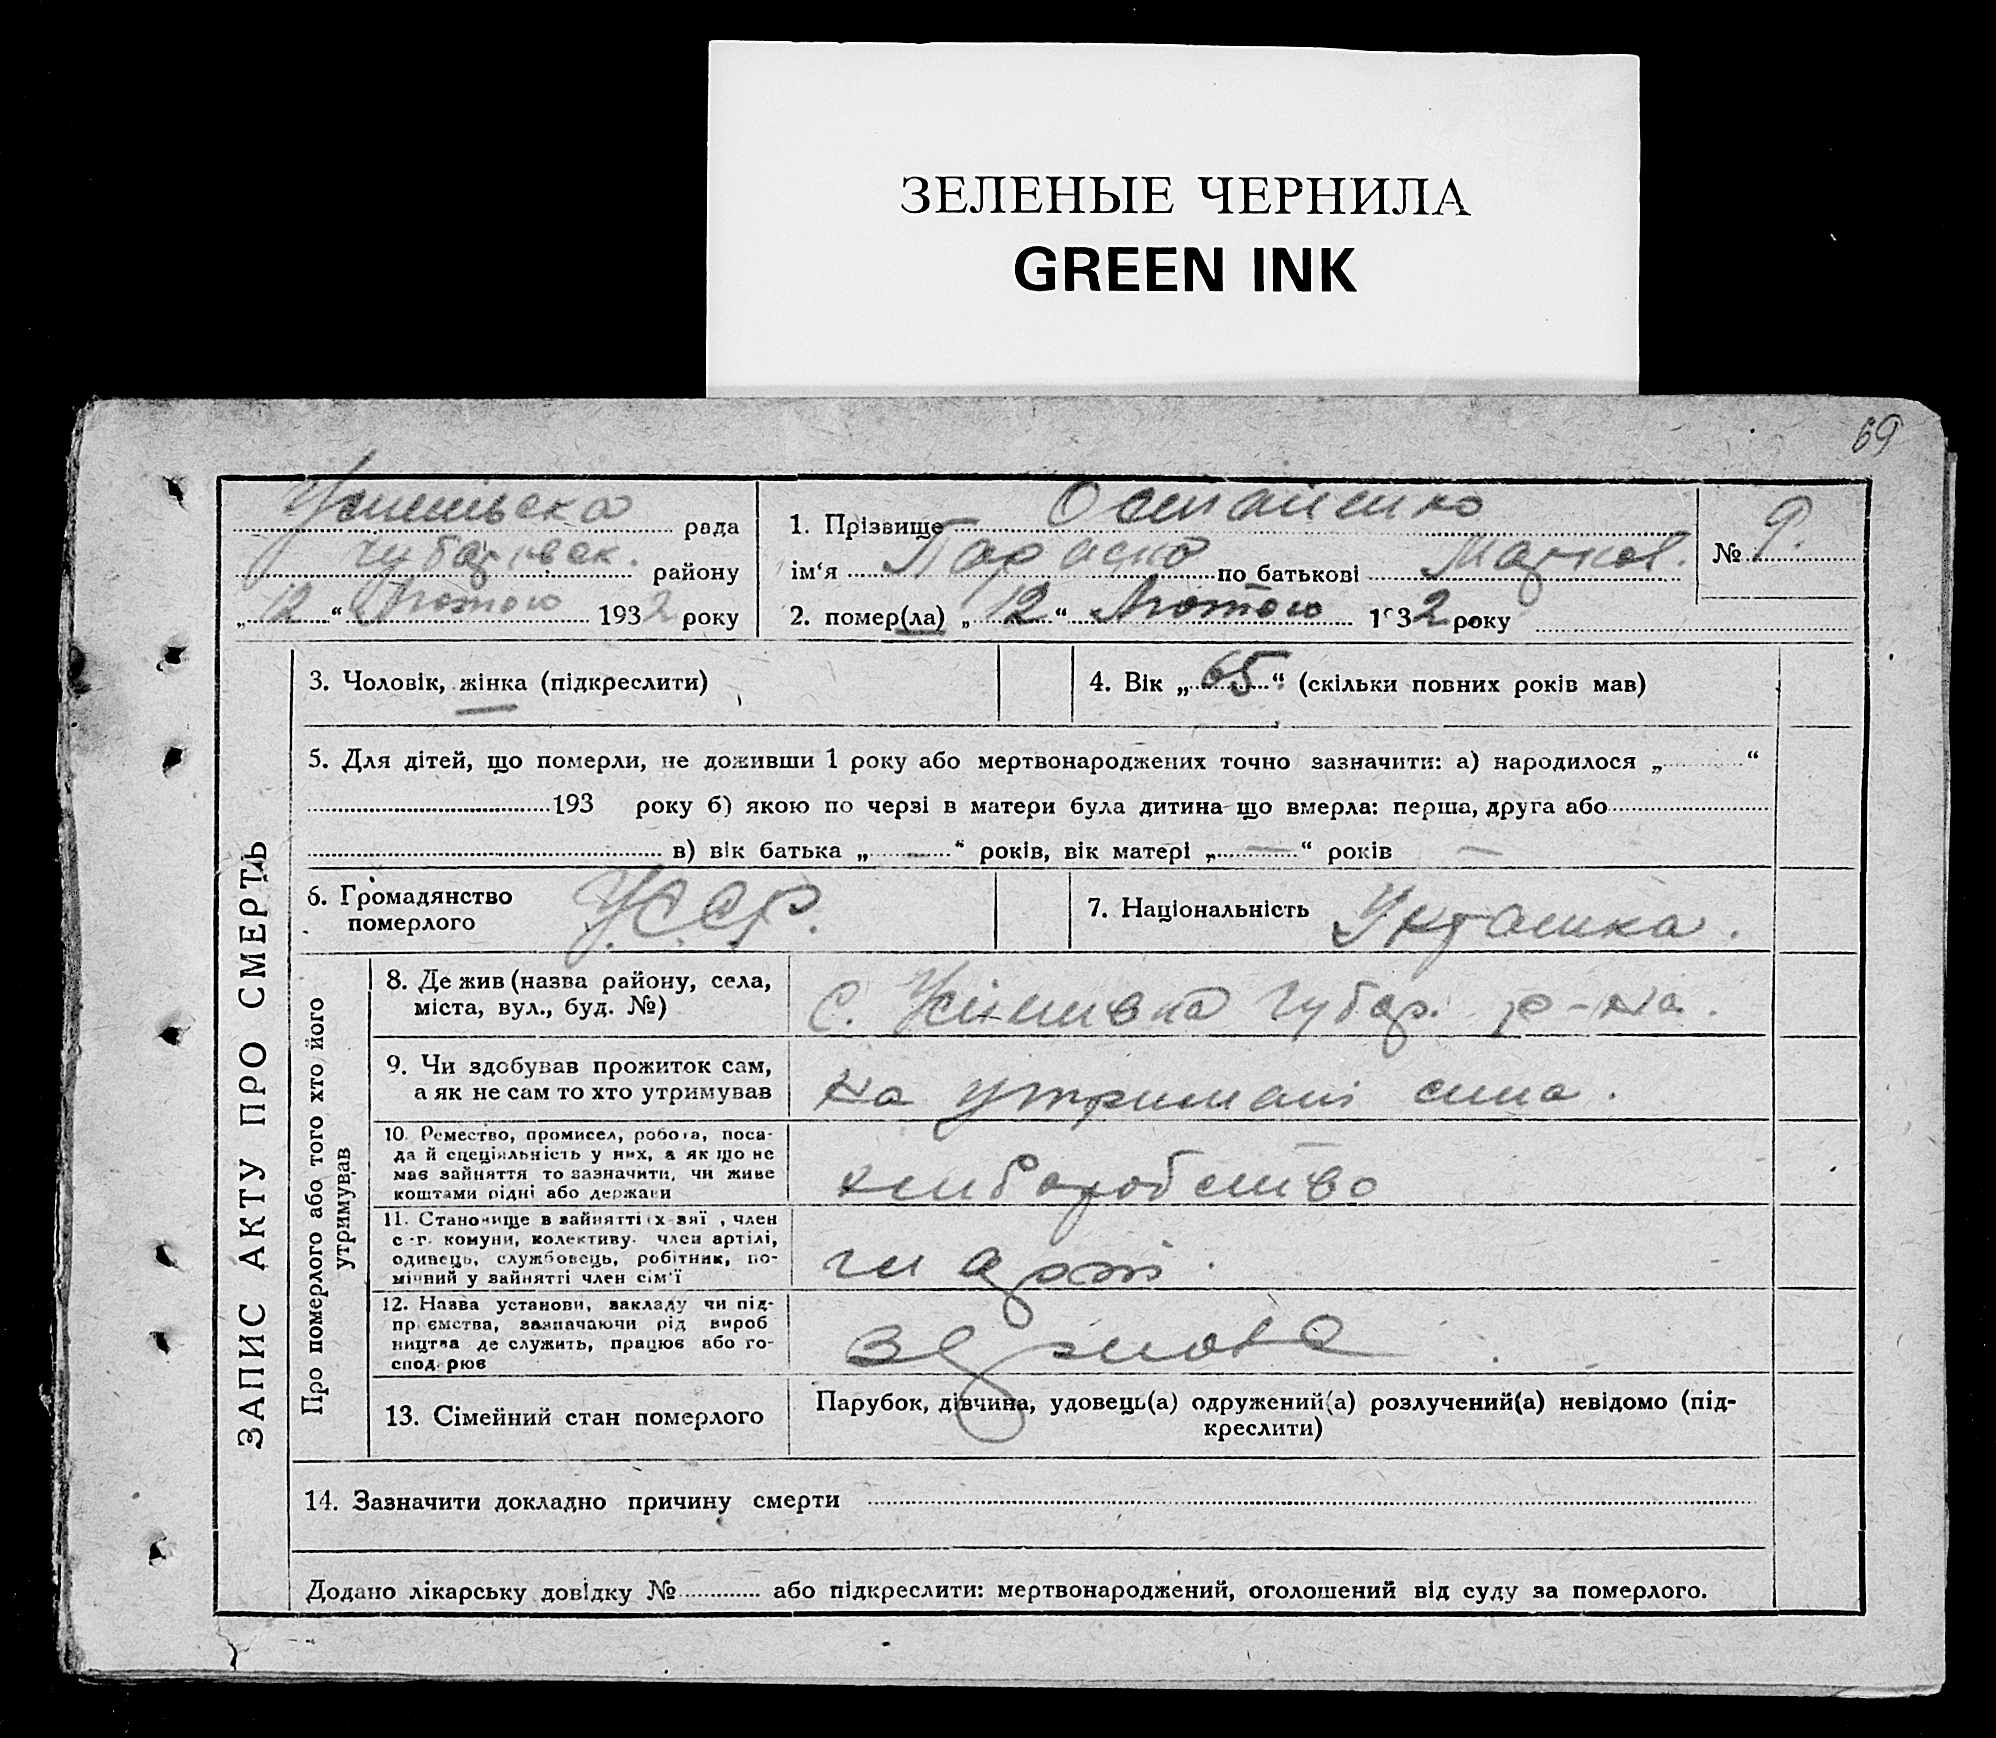 ЗЕЛЕНЫЕ ЧЕРНИЛА
GREEN INK
69
рада
Чубарівск. району
„12“ Лютого 1932 року
1. Прізвище Остапенко
ім‘я Параска по батькові Марков.
2. помер(ла) „12“ Лютого 1932 року
№ 9.
ЗАПИС АКТУ ПРО СМЕРТЬ
3. Чоловік, жінка (підкреслити)
4. Вік „65“ (скільки повних років мав)
5. Для дітей, що померли, не доживши 1 року або мертвонароджених точно зазначити: а) народилося „ “
193 року б) якою по черзі в матери була дитина що вмерла: перша, друга або
в) вік батька „ — “ років, вік матері „ — “ років —
6. Громадянство
померлого
У.С.С.Р.
7. Національність Укр
Про померлого або того хто його
утримував
8. Де жив (назва району, села,
міста, вул., буд. №)
с. Чубар. р-на.
9. Чи здобував прожиток сам,
а як не сам то хто утримував
на утримані сина.
10. Ремество, промисел, робота, поса-
да й спеціяльність у них, а як що не
має зайняття то зазначити, чи живе
коштами рідні або держави
хліборобство
11. Становище в зайнятті: , член
с.-г. комуни, колективу. член артілі,
одинець, службовець, робітник, по-
мічний у зайнятті член сім‘ї
чл арт
12. Назва установи, закладу чи під-
приємства, зазначаючи рід вироб
ництва де служить, працює або го-
сподарює
13. Сімейний стан померлого
Парубок, дівчина, удовець(а) одружений(а) розлучений(а) невідомо (під-
креслити)
14. Зазначити докладно причину смерти
Додано лікарську довідку № або підкреслити: мертвонароджений, оголошений від суду за померлого.